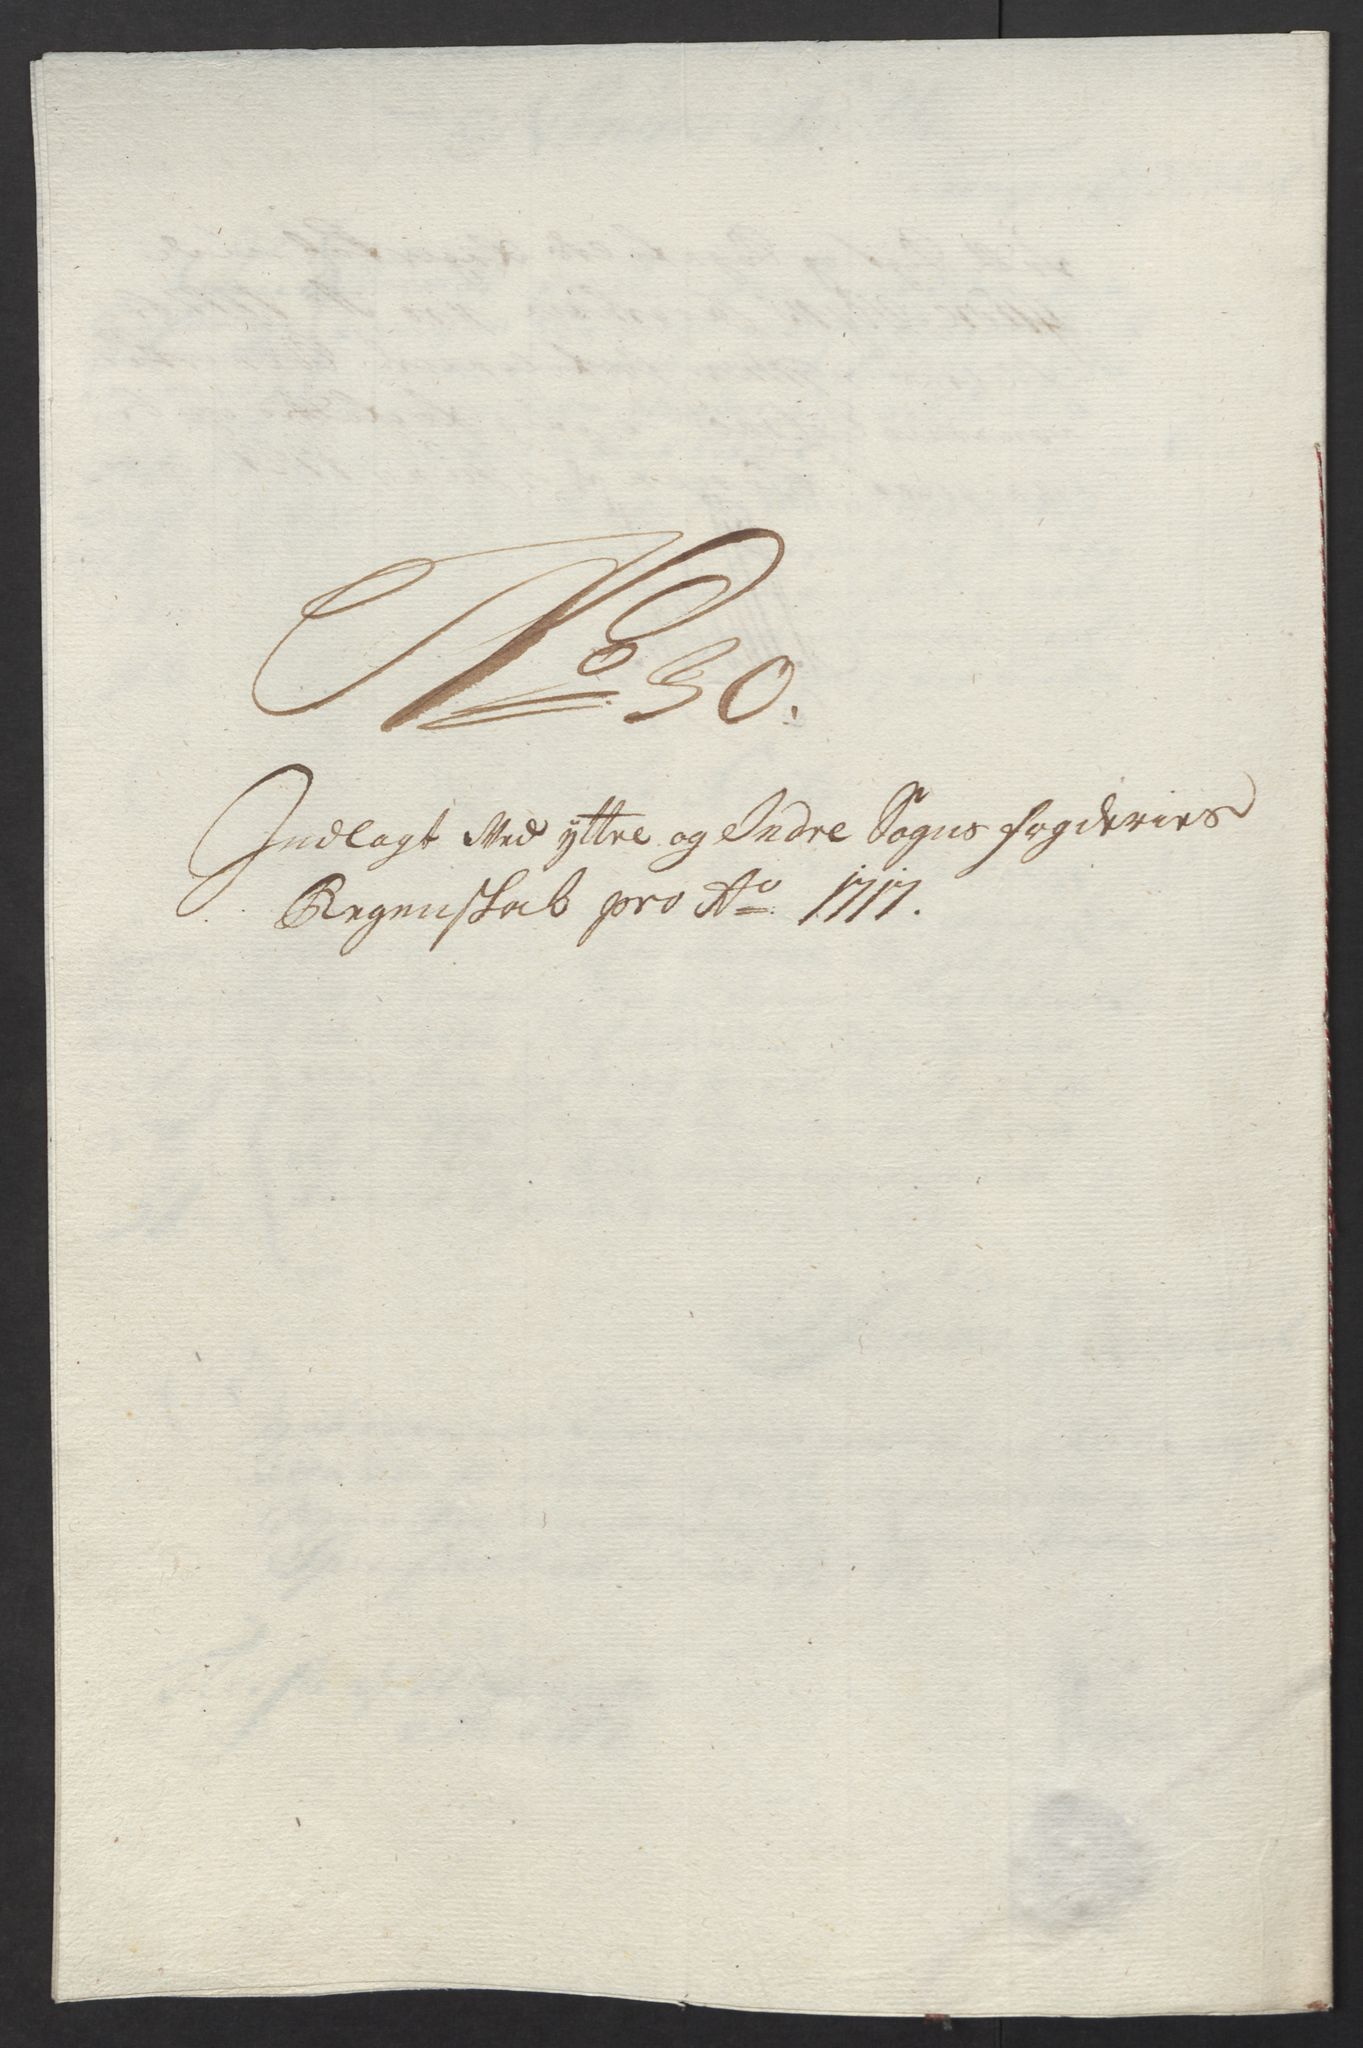 No 30.
Indlagt Med yttre og Indre Sogns fogderies
Regenskab pro Ao 1717.